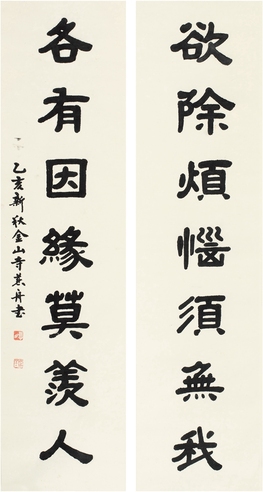 欲除煩惱須無我
各有因緣莫羨人
乙亥新秋金山寺慈舟書